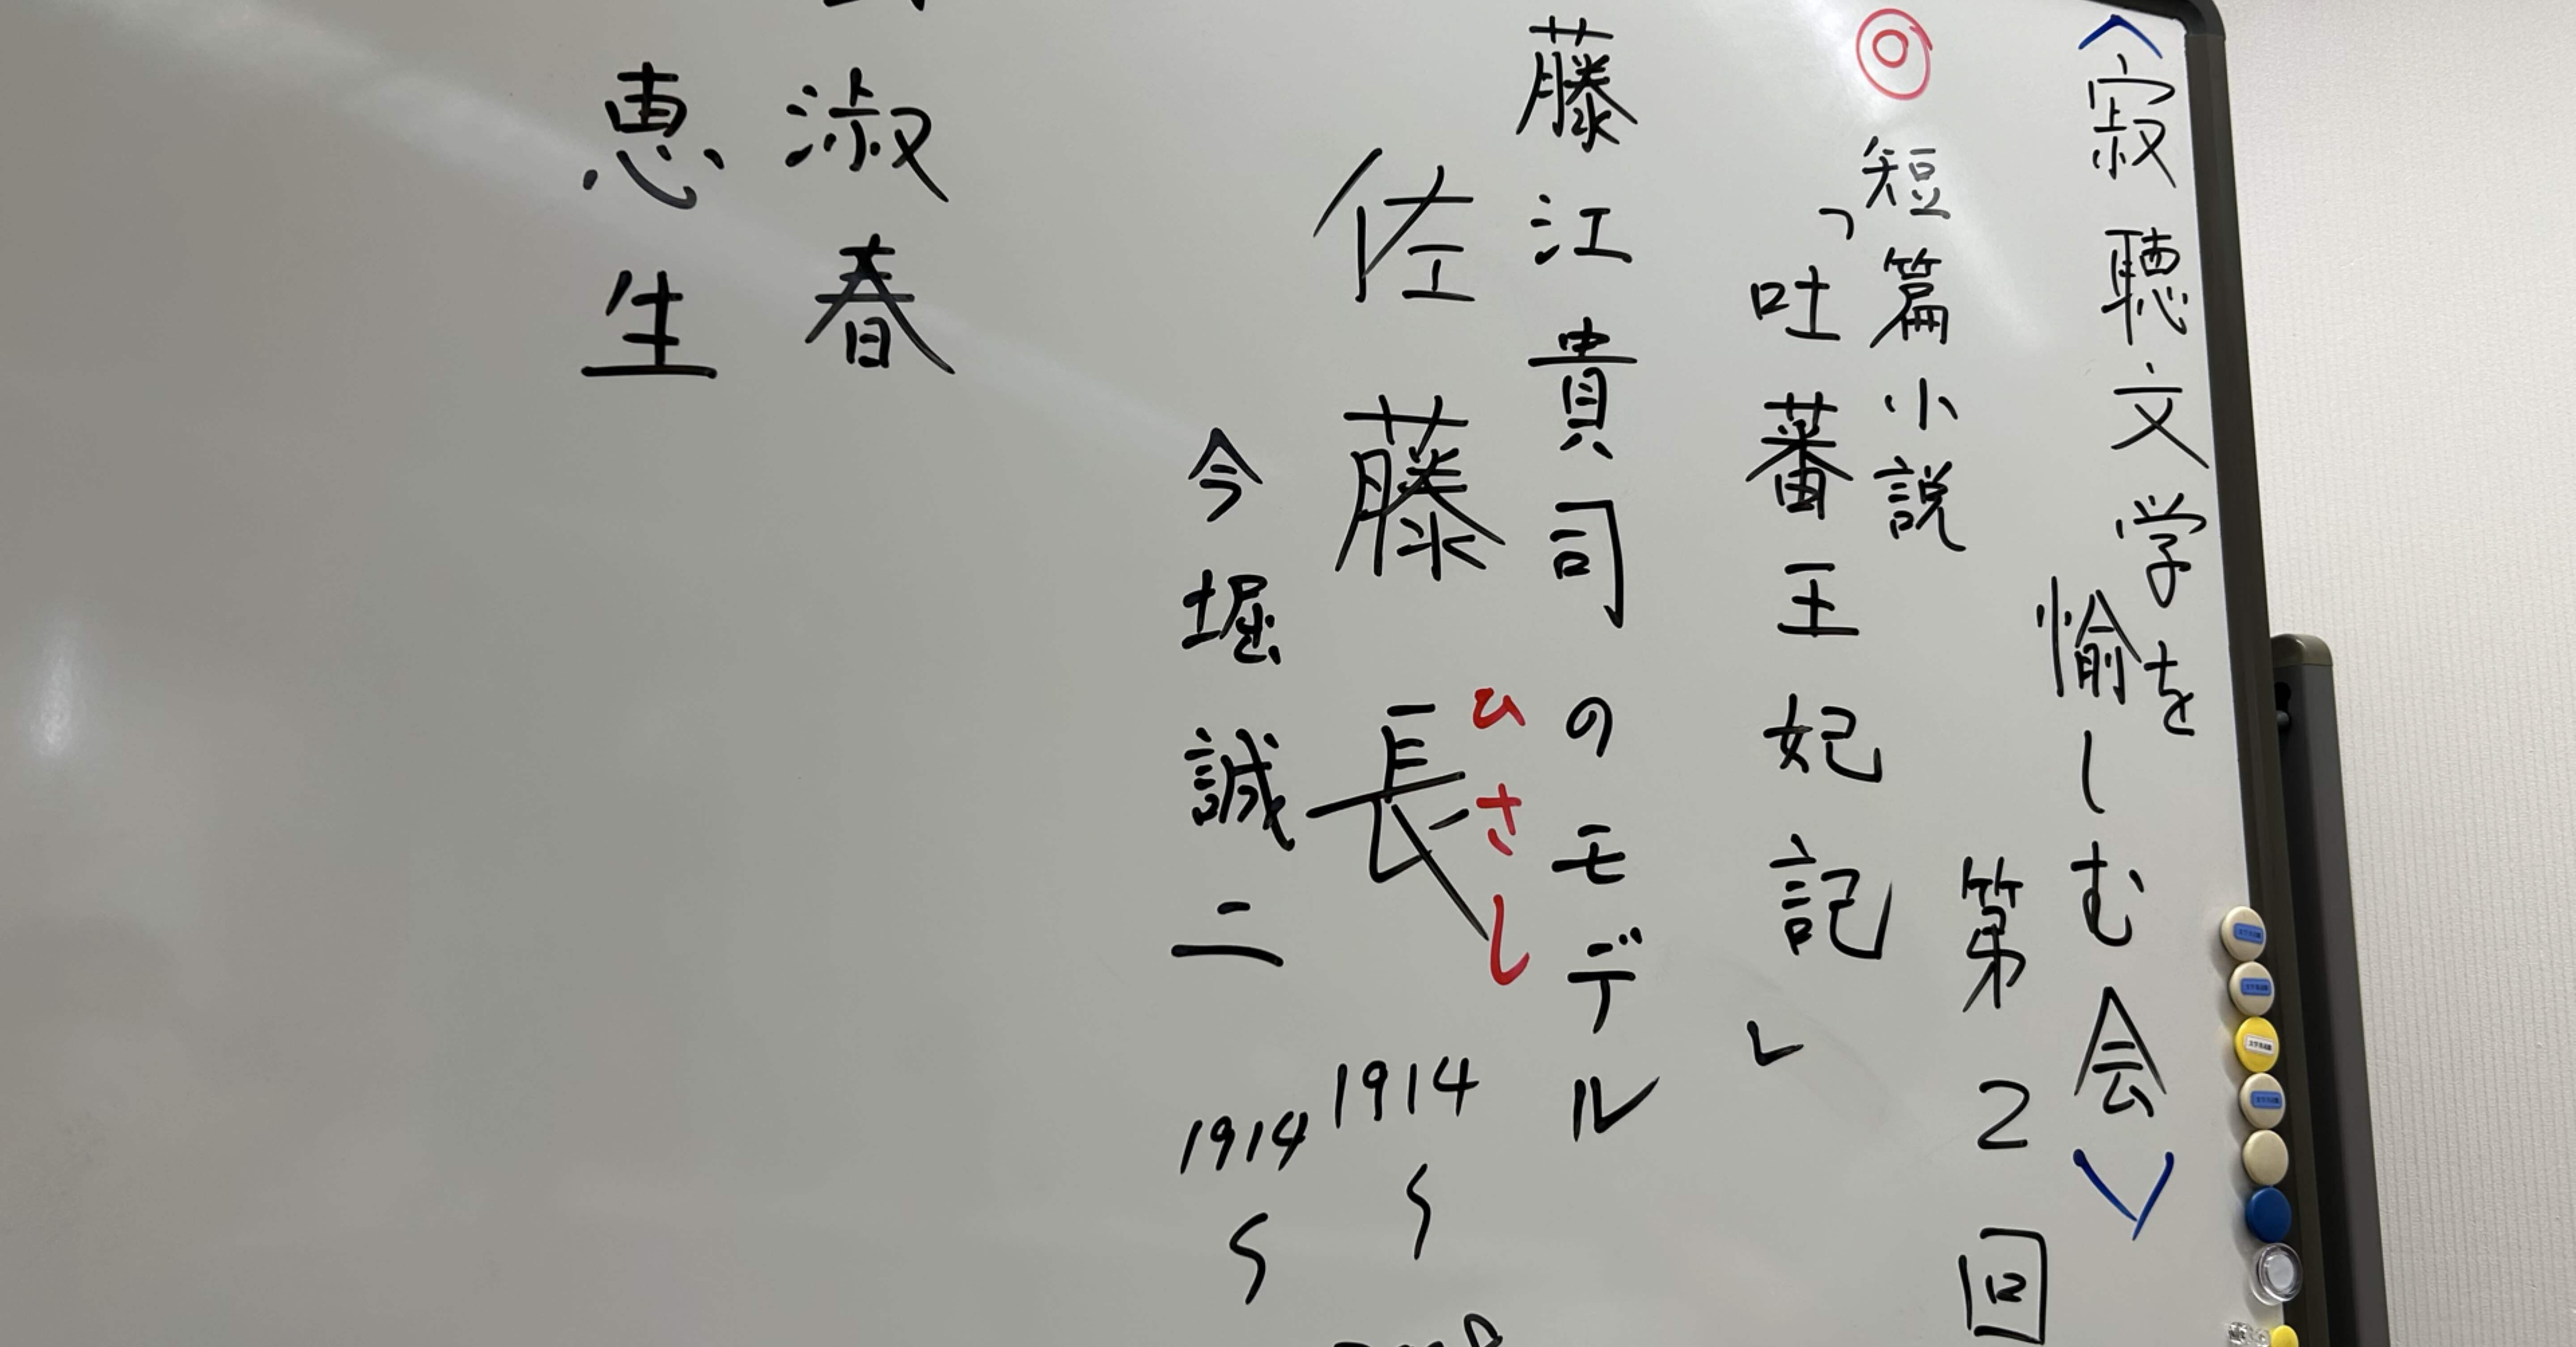 〈寂聴文学を
愉しむ会〉
第2回
◎短篇小説
「吐蕃王妃記」
藤江貴司のモデル
佐藤長 1914〜
ひさし
今堀誠二 1914〜
淑春
恵生